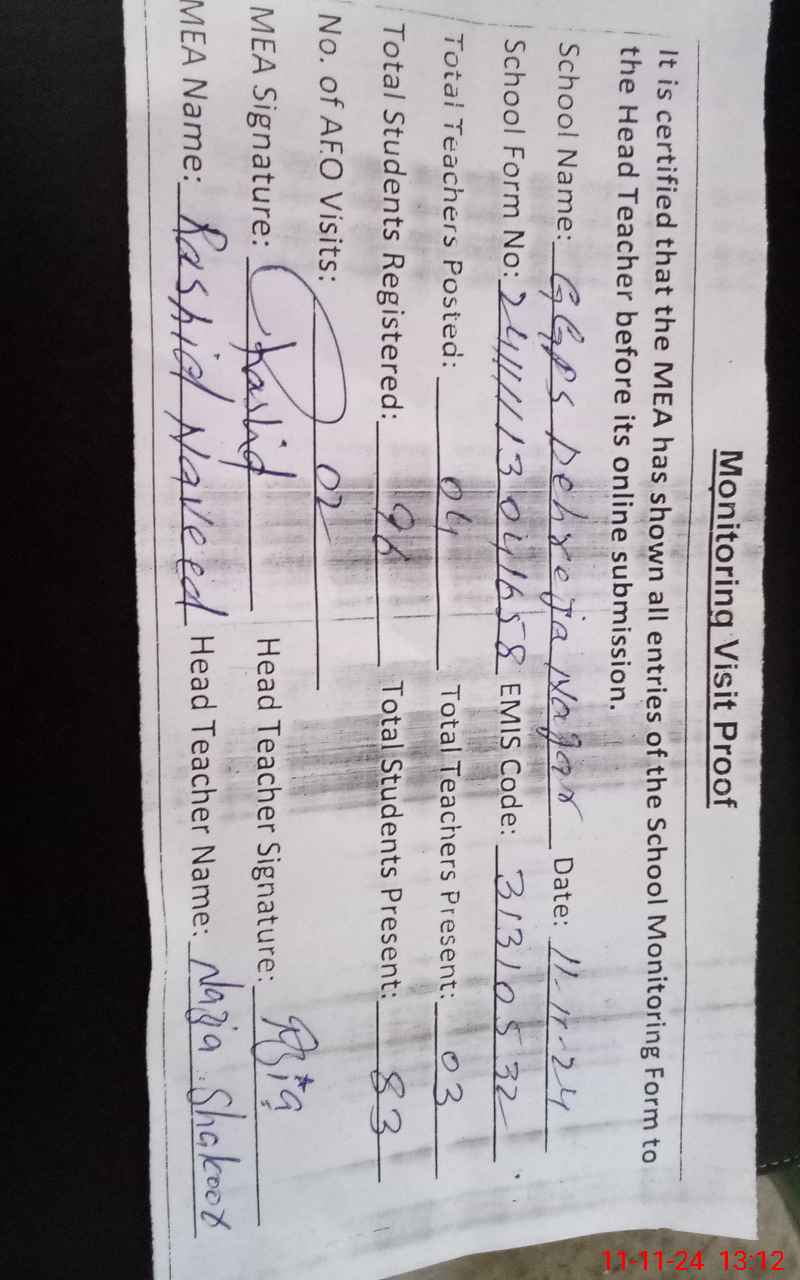 Monitoring Visit Proof
It is certified that the MEA has shown all entries of the School Monitoring Form to
the Head Teacher before its online submission.
School Name: GGPS Dehreja Nagar Date: 11-11-24
School Form No: 24111113041658 EMIS Code: 31310532
Total Teachers Posted: 04 Total Teachers Present: 03
Total Students Registered: 96 Total Students Present: 83
No. of AEO Visits: 02
MEA Signature: Rashid Head Teacher Signature:
MEA Name: Rashid Naveed Head Teacher Name: Nazia Shakoor
11-11-24 13:12